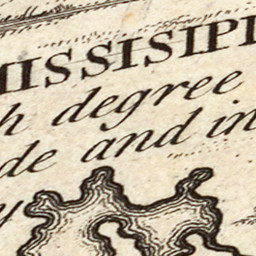 MISSISIPI
h degree
de and in
y